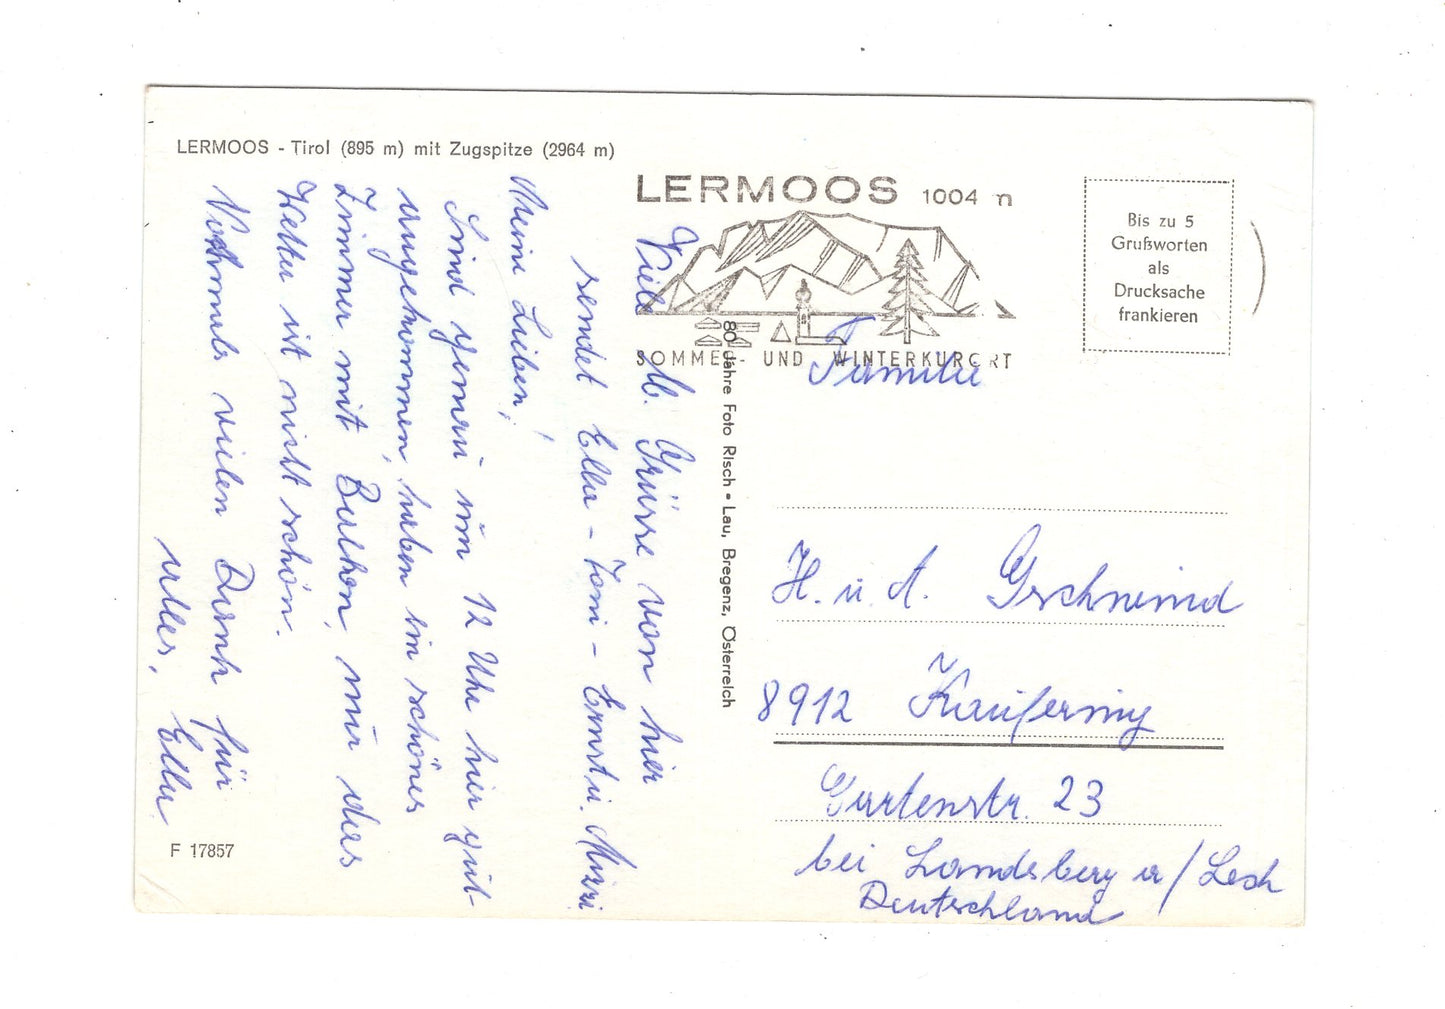 LERMOOS - Tirol (895 m) mit Zugspitze (2964 m)
LERMOOS 1004 m
SOMMER- UND WINTERKURORT
Bis zu 5
Grußworten
als
Drucksache
frankieren
Viele lb. Grüsse von hier
sendet Ella - Toni - Ernst u.
Meine Lieben!
Sind genau um 12 Uhr hier gut
angekommen, haben ein schönes
Zimmer mit Balkon, nur das
Wetter ist nicht schön.
Nochmals vielen Dank für
alles, Ella
80 Jahre Foto Risch • Lau, Bregenz, Österreich
Familie
H. u. A. Gschneind
8912 Kaufering
Gartenstr. 23
bei Landsberg a/Lech
Deutschland
F 17857